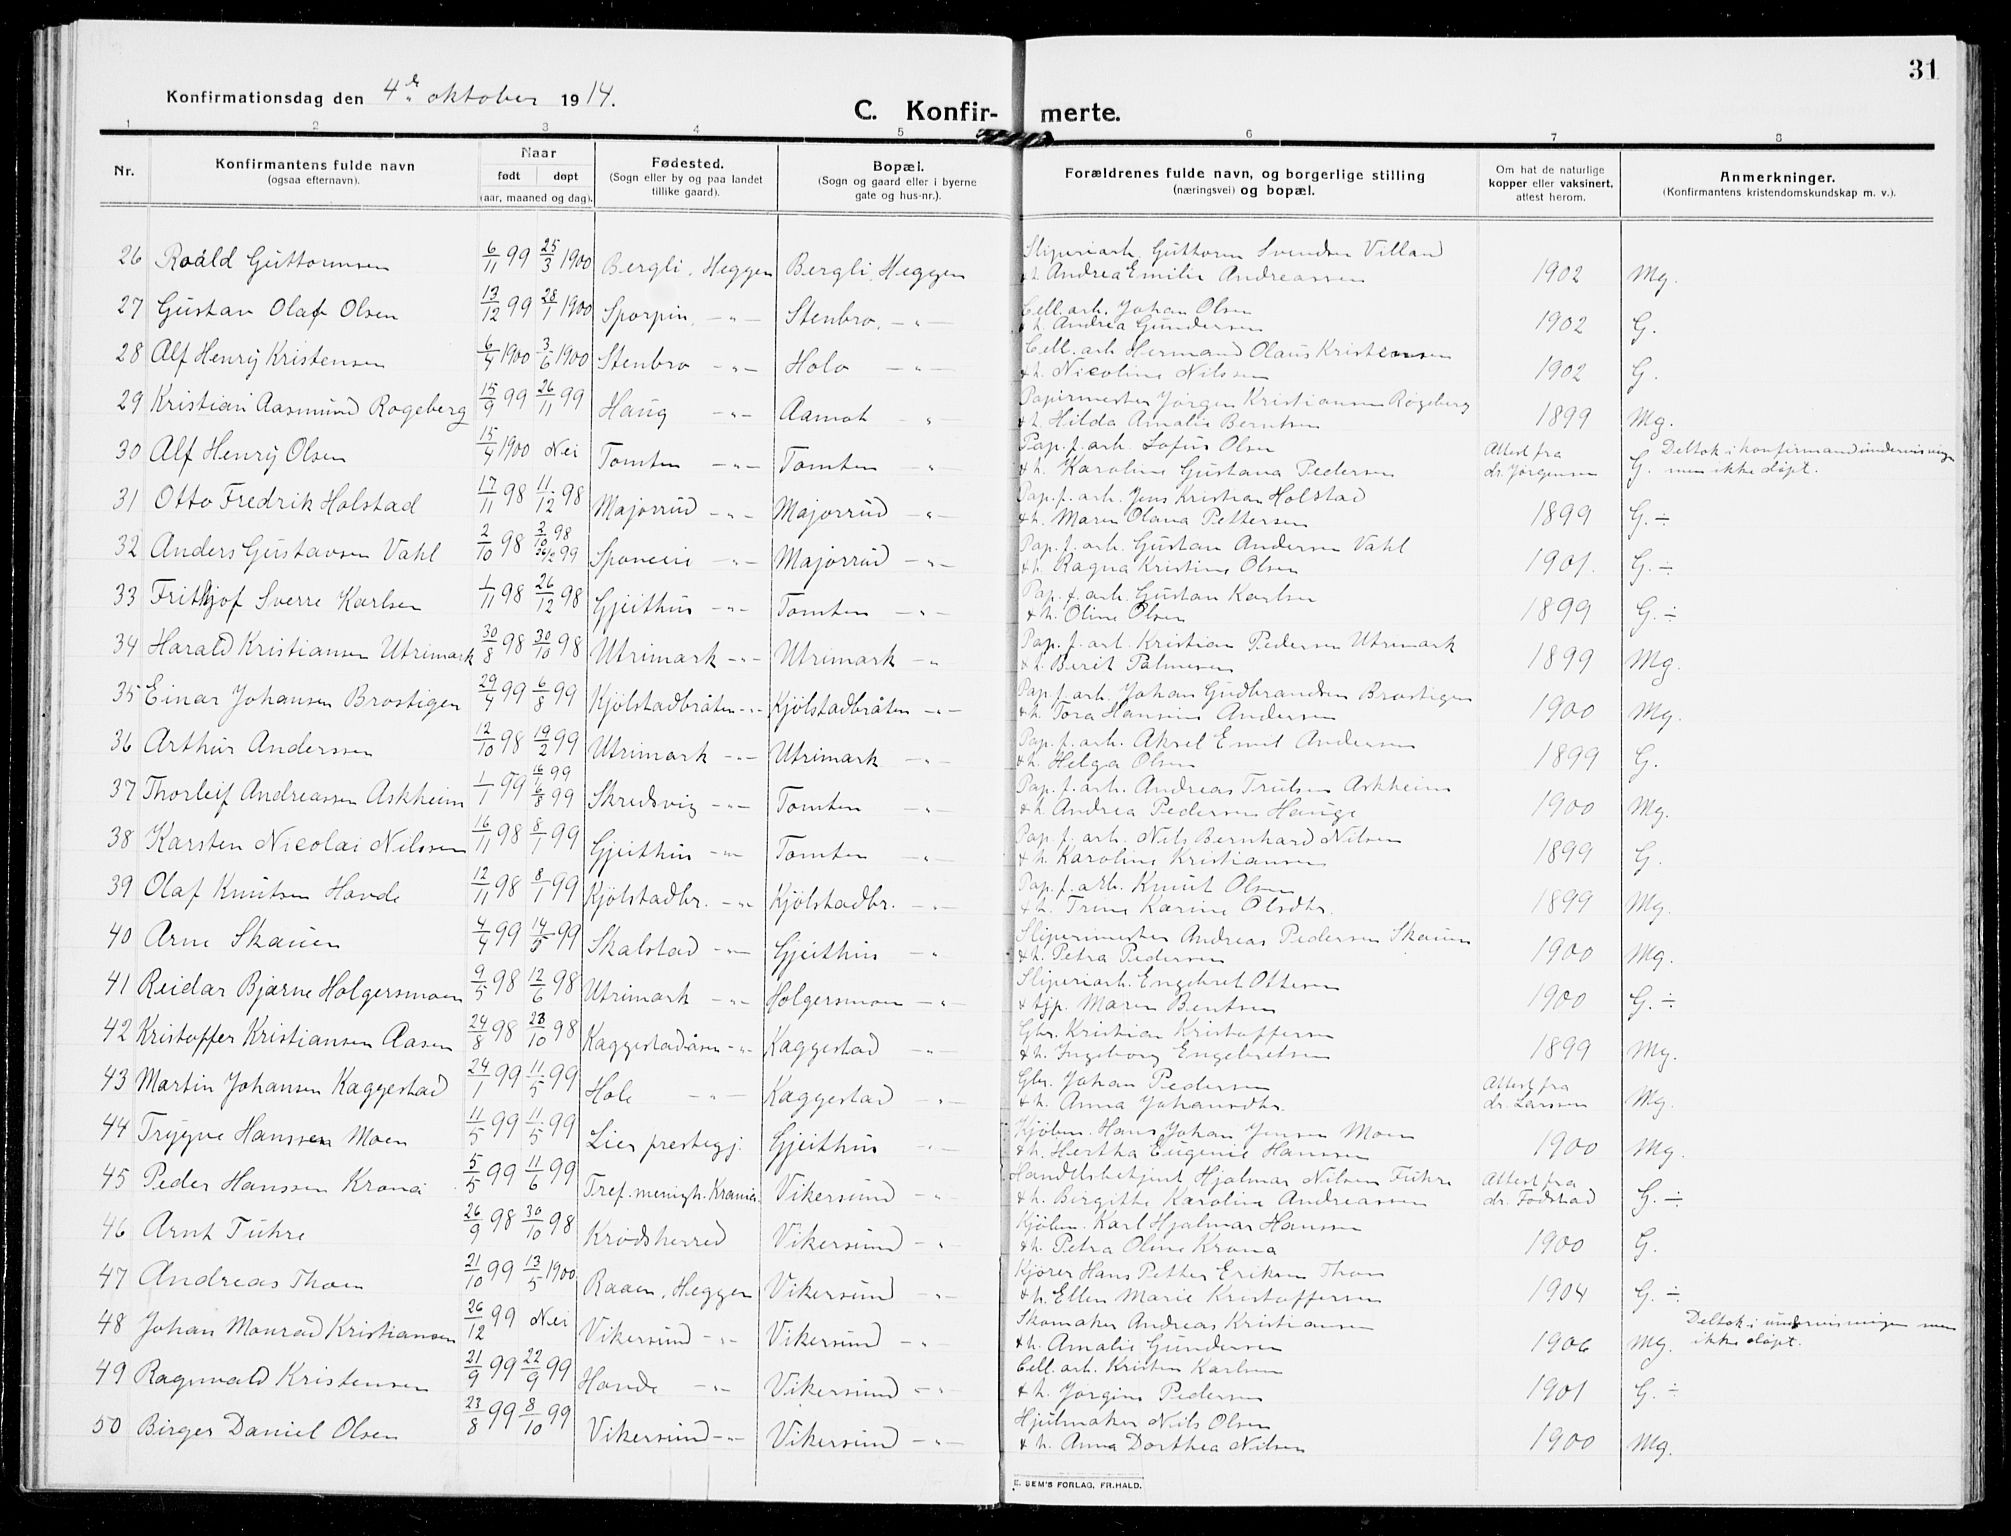 31
Konfirmationsdag den 4de oktober 1914.
C. Konfir- merte.
1 2 3 4 5 6 7 8
Nr. Konfirmantens fulde navn (ogsaa efternavn). Naar født døpt (aar, maaned og dag). Fødested. (Sogn eller by og paa landet tillike gaard). Bopæl. (Sogn og gaard eller i byerne gate og hus-nr.). Forældrenes fulde navn, og borgerlige stilling (næringsvei) og bopæl. Om hat de naturlige kopper eller vaksinert, attest herom. Anmerkninger. (Konfirmantens kristendomskundskap m. v.).
26 Roald Guttormsen 6/11 99 25/3 1900 Bergli, Heggen Bergli, Heggen Sliperiarb. Guttorm Svendsen Villand & h. Andrea Emilie Andreassen 1902 Mg.
27 Gustav Olaf Olsen 13/12 99 28/1 1900 Sporpin, -"- Stenbro, -"- Cell. arb. Johan Olsen & h. Andrea Gundersen 1902 G.
28 Alf Henry Kristensen 6/4 1900 3/6 1900 Stenbro -"- Holo -"- Cell. arb Hermand Olaus Kristensen & h. Nicoline Nilssen 1902 G.
29 Kristian Aasmund Rogeberg 15/9 99 26/11 99 Haug -"- Aamot -"- Papirmester Jørgen Kristiansen Røgeberg & h. Hilda Amalie Berntsen 1899 Mg.
30 Alf Henry Olsen 15/4 1900 Nei Tomten -"- Tomten -"- Pap. f. arb. Sofus Olsen & h. Karoline Gustava Pedersen Attest fra dr. Jørgensen G. Deltok i konfirmandundervisningen men ikke døpt.
31 Otto Fredrik Holstad 17/11 98 11/12 98 Majorrud -"- Majorrud -"- Pap. f. arb. Jens Kristian Holstad & h. Maren Olava Pettersen 1899 G. ÷
32 Anders Gustavsen Vahl 2/10 98 2/10 98 26/2 99 Sponevi -"- Majorrud -"- Pap. f. arb. Gustav Andersen Vahl & h. Ragna Kristine Olsen 1901. G. ÷
33 Frithjof Sverre Karlsen 1/11 98 26/12 98 Gjeithus -"- Tomten -"- Pap. f. arb. Gustav Karlsen & h. Oline Olsen 1899 G. ÷
34 Harald Kristiansen Utrimark 30/8 98 30/10 98 Utrimark -"- Utrimark -"- Pap. f. arb. Kristian Pedersen Utrimark & h. Berit Palmesen 1899 Mg.
35 Einar Johansen Brostigen 29/4 99 6/8 99 Kjölstadbråten -"- Kjölstadbråten -"- Pap. f. arb. Johan Gudbrandsen Brostigen & h. Tora Hansine Andersen 1900 Mg.
36 Arthur Anderssen 12/10 98 19/2 99 Utrimark -"- Utrimark -"- Pap. f. arb. Aksel Emil Andersen & h. Helga Olsen 1899 G.
37 Thorleif Andreassen Askheim 1/1 99 16/1 99 6/8 99 Skredsvig -"- Tomten -"- Pap. f. arb. Andreas Trulsen Askheim & h. Andrea Pedersen Hauge 1900 Mg.
38 Karsten Nicolai Nilssen 16/11 98 8/1 99 Gjeithus -"- Tomten -"- Pap. f. arb. Nils Bernhard Nilsen & h. Karoline Kristiansen 1899 G.
39 Olaf Knutsen Hovde 12/11 98 8/1 99 Kjölstadbr. -"- Kjölstadbr. -"- Pap. f. arb. Knut Olsen & h. Trine Karine Olsdtr. 1899 Mg.
40 Arne Skauen 4/4 99 14/5 99 Skalstad -"- Gjeithus -"- Sliperimester Andreas Pedersen Skauen & h. Petra Pedersen 1900 Mg.
41 Reidar Bjarne Holgersmoen 9/5 98 12/6 98 Utrimark -"- Holgersmoen -"- Sliperiarb. Engebret Ottesen & hjp. Maren Bentsen 1900 G. ÷
42 Kristoffer Kristiansen Aasen 24/8 98 23/10 98 Kaggestadåsen -"- Kaggestad -"- Gbr. Kristian Kristoffersen & h. Ingeborg Engebretsen 1899 Mg.
43 Martin Johansen Kaggestad 24/1 99 11/5 99 Hole -"- Kaggestad -"- Gbr. Johan Pedersen & h. Anna Johansdtr. Attest fra dr. Larssen Mg.
44 Trygve Hanssen Moen 11/5 99 11/5 99 Lier prestegj. Gjeithus -"- Kjøbm. Hans Johan Jensen Moen & h. Hertha Eugenie Hanssen 1900 Mg.
45 Peder Hanssen Krona 5/5 99 11/6 99 Tref. menigh. Krania. Vikersund -"- Handelsbetjent Hjalmar Nilsen Fuhre & h. Birgitte Karoline Andreassen Attest fra dr. Fodstad G. ÷
46 Arnt Fuhre 26/9 98 30/10 98 Krødsherred Vikersund -"- Kjøbm. Karl Hjalmar Hanssen & h. Petra Oline Krona 1900 G.
47 Andreas Thon 21/10 99 13/5 1900 Raaen, Heggen Vikersund -"- Kjører Hans Petter Eriksen Thon & h. Ellen Marie Kristoffersen 1904 G. ÷
48 Johan Monrad Kristiansen 26/12 99 Nei Vikersund -"- Vikersund -"- Skomaker Andreas Kristiansen & h. Amalie Gundersen 1906 Mg. Deltok i undervisningen men ikke døpt.
49 Ragnvald Kristensen 21/9 99 22/9 99 Hovde -"- Vikersund -"- Cell. arb. Kristen Karlsen & h. Jørgine Pedersen 1901 G. ÷
50 Birger Daniel Olsen 23/8 99 8/10 99 Vikersund -"- Vikersund -"- Hjulmaker Nils Olsen & h. Anna Dorthea Nilsen 1900 Mg.
E. SEM'S FORLAG, FR.HALD.